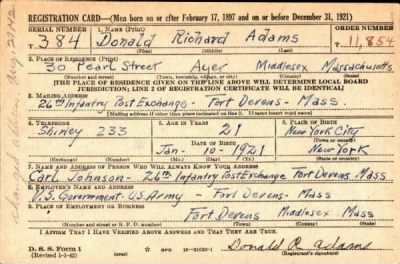 REGISTRATION CARD—(Men born on or after February 17, 1897 and on or before December 31, 1921)
SERIAL NUMBER 1. NAME (Print) ORDER NUMBER
T 384 Donald Richard Adams T 11,854
(First) (Middle) (Last)
2. PLACE OF RESIDENCE (Print)
30 Pearl Street Ayer Middlesex Massachusetts
(Number and street) (Town, township, village, or city) (County) (State)
[THE PLACE OF RESIDENCE GIVEN ON THE LINE ABOVE WILL DETERMINE LOCAL BOARD
JURISDICTION; LINE 2 OF REGISTRATION CERTIFICATE WILL BE IDENTICAL]
3. MAILING ADDRESS
26th Infantry Post Exchange - Fort Devens - Mass.
[Mailing address if other than place indicated on line 2. If same insert word same]
4. TELEPHONE 5. AGE IN YEARS 6. PLACE OF BIRTH
Shirley 233 21 New York City
DATE OF BIRTH (Town or county)
Jan - 10 - 1921 New York
(Exchange) (Number) (Mo.) (Day) (Yr.) (State or country)
7. NAME AND ADDRESS OF PERSON WHO WILL ALWAYS KNOW YOUR ADDRESS
Carl Johnson - 26th Infantry Post Exchange Fort Devens Mass
8. EMPLOYER'S NAME AND ADDRESS
U.S. Government - U.S. Army Fort Devens Mass
9. PLACE OF EMPLOYMENT OR BUSINESS
Fort Devens Middlesex Mass
(Number and street or R. F. D. number) (Town) (County) (State)
I AFFIRM THAT I HAVE VERIFIED ABOVE ANSWERS AND THAT THEY ARE TRUE.
D. S. S. Form 1
(Revised 1-1-42) Donald R. Adams
(Registrant's signature)